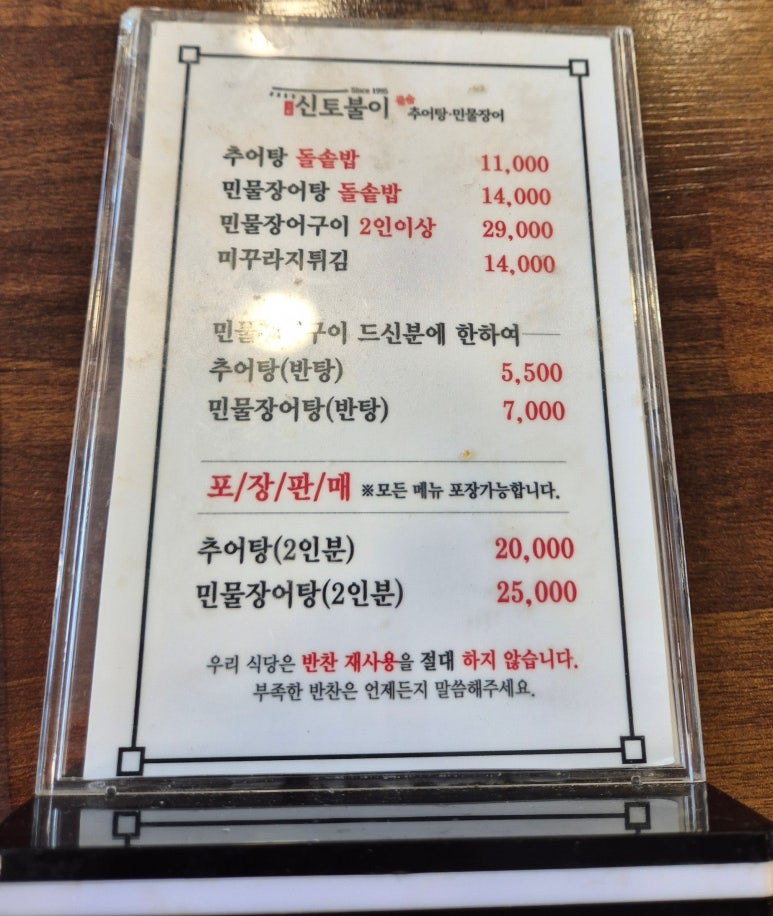 Since 1995
신토불이 추어탕·민물장어
추어탕 돌솥밥 11,000
민물장어탕 돌솥밥 14,000
민물장어구이 2인이상 29,000
미꾸라지튀김 14,000
민물 구이 드신분에 한하여
추어탕(반탕) 5,500
민물장어탕(반탕) 7,000
포/장/판/매 ※모든 메뉴 포장가능합니다.
추어탕(2인분) 20,000
민물장어탕(2인분) 25,000
우리 식당은 반찬 재사용을 절대 하지 않습니다.
부족한 반찬은 언제든지 말씀해주세요.